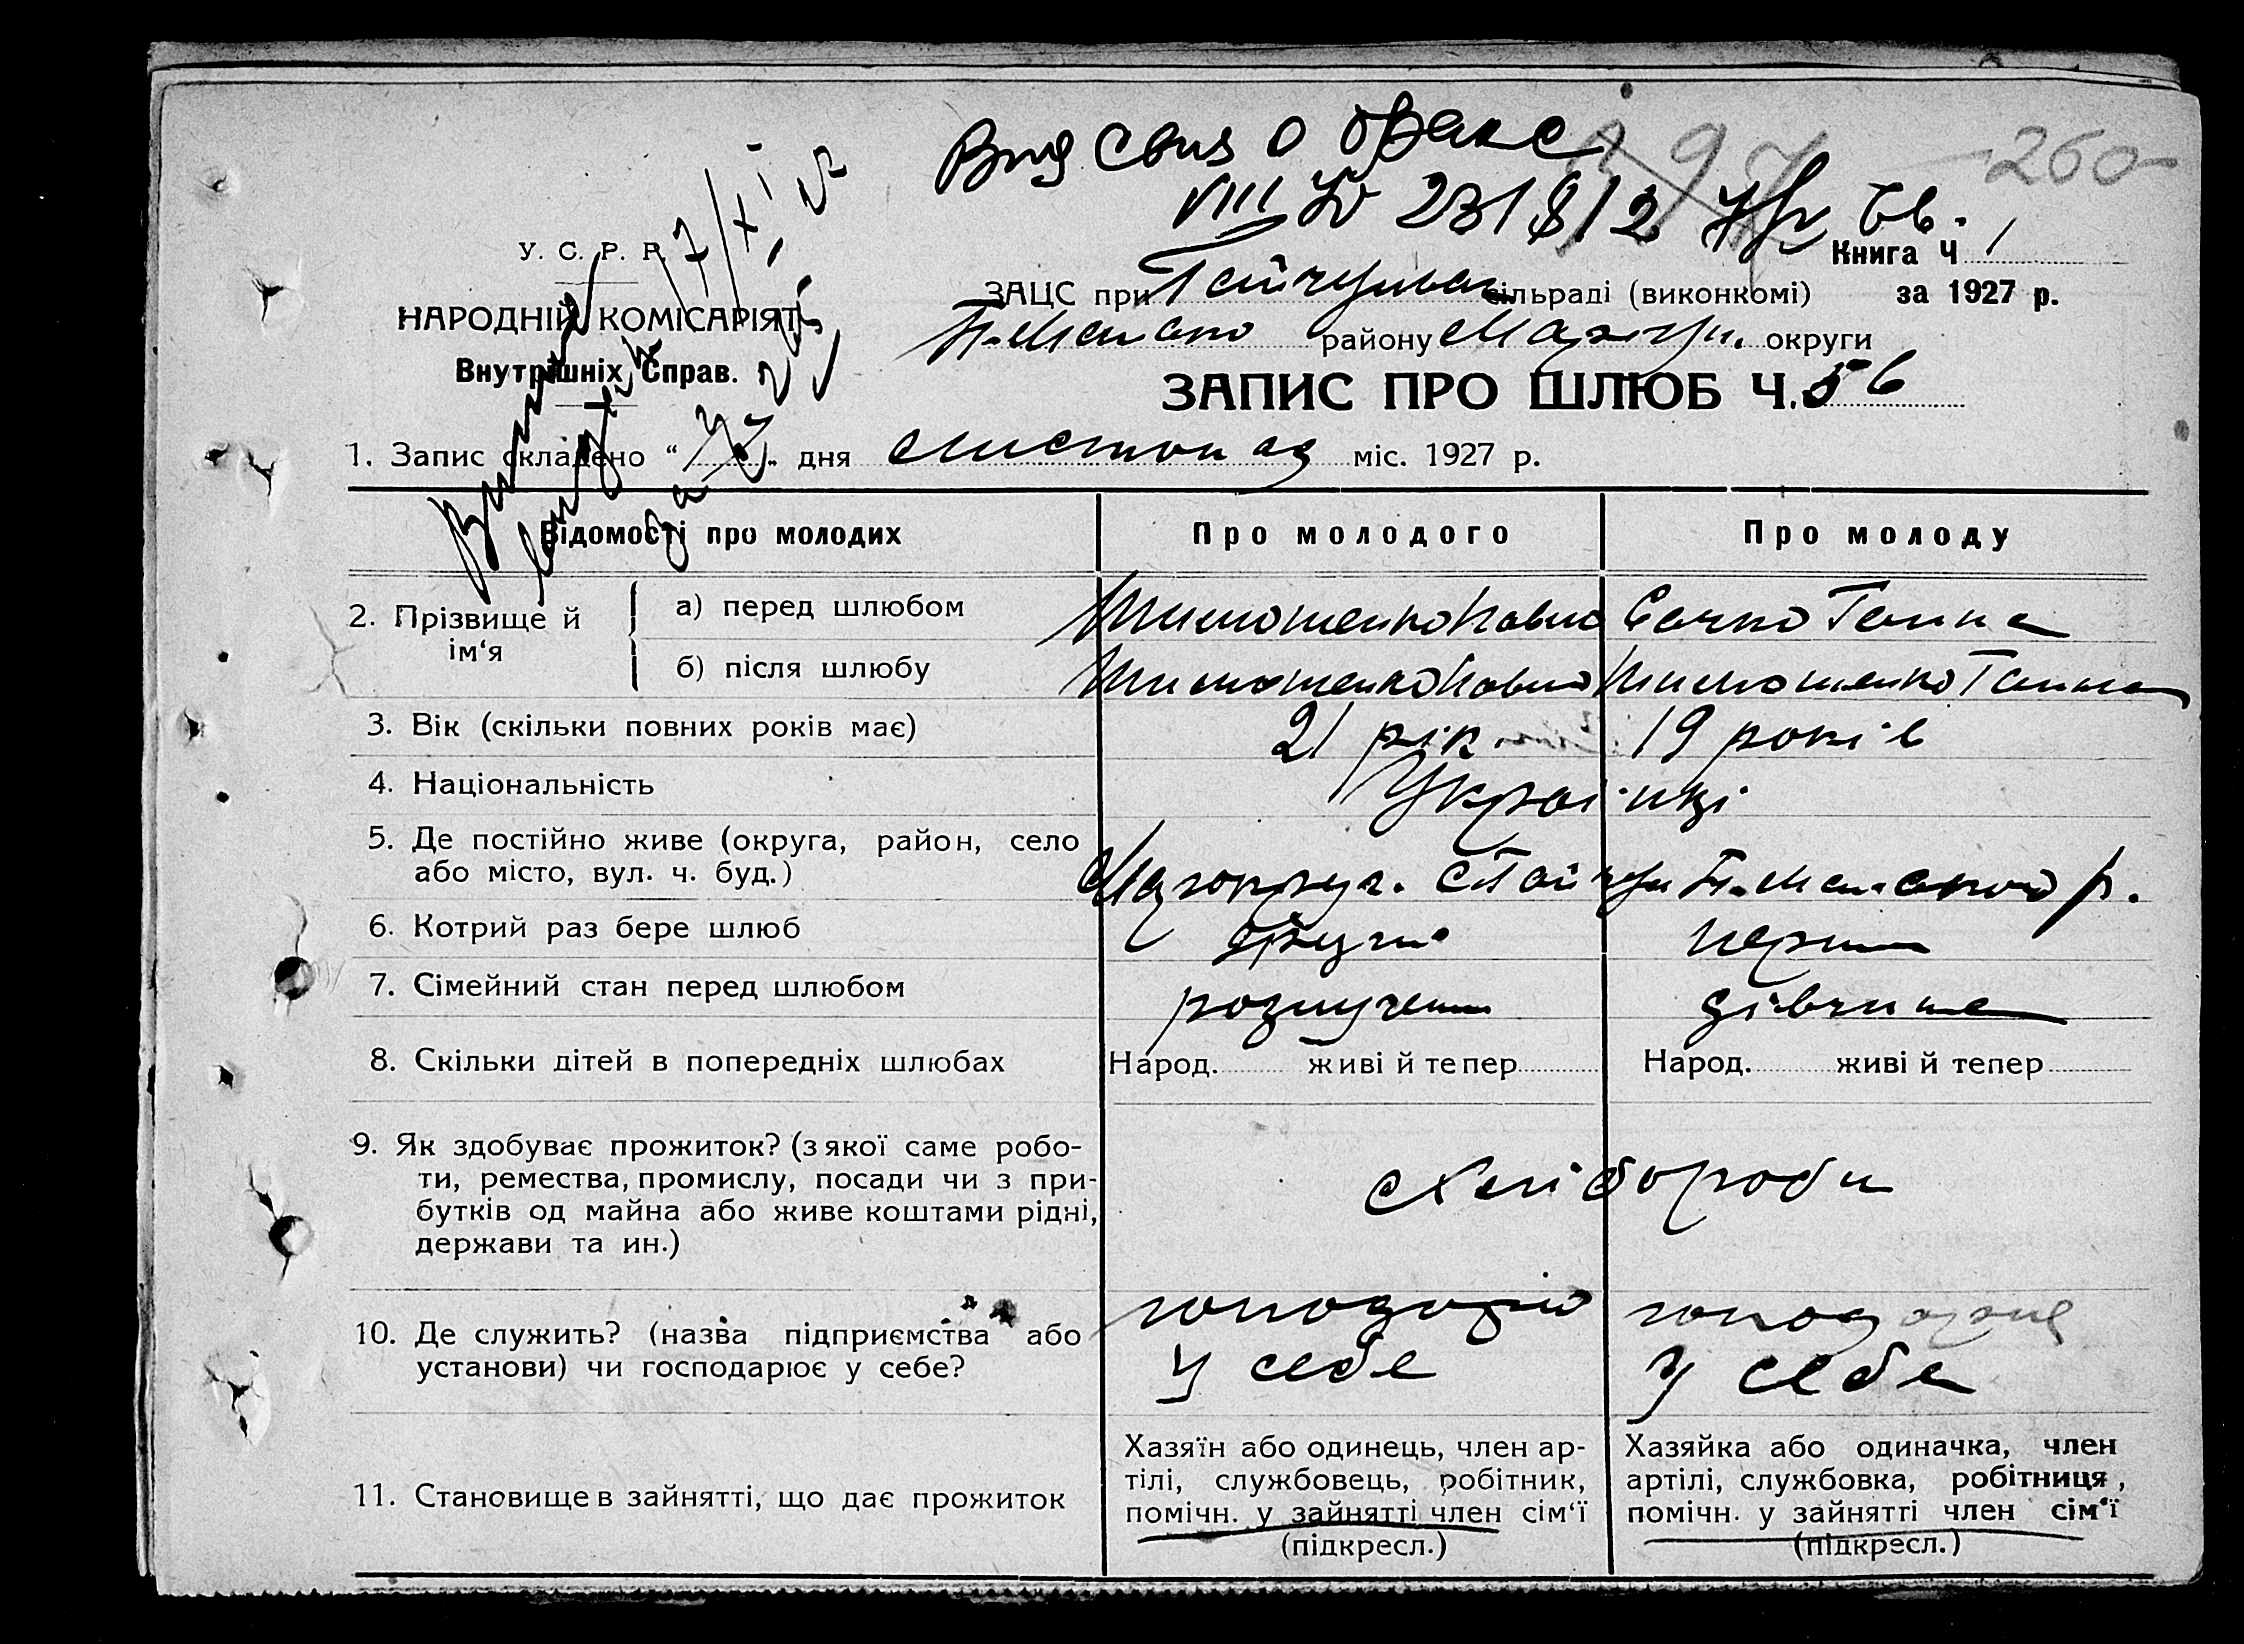 Вид свид о браке
260
VIII 231812
У. С. Р. Р.
Книга Ч. 1
ЗАЦС при Гайчульск сільраді (виконкомі) за 1927 р.
НАРОДНІЙ КОМІСАРІЯТ
району округи
Внутрішніх Справ.
ЗАПИС ПРО ШЛЮБ Ч. 56
1. Запис складено " 7 " дня листопад міс. 1927 р.
Відомості про молодих Про молодого Про молоду
2. Прізвище й ім‘я
а) перед шлюбом Тимошенко Павло Сачко Ганна
б) після шлюбу Тимошенко Павло Тимошенко Ганна
3. Вік (скільки повних років має) 21 рік 19 років
4. Національність Українці
5. Де постійно живе (округа, район, село
або місто, вул. ч. буд.) с Гайчул р.
6. Котрий раз бере шлюб другий перший
7. Сімейний стан перед шлюбом розлучений дівчина
8. Скільки дітей в попередніх шлюбах Народ. живі й тепер Народ. живі й тепер
9. Як здобуває прожиток? (з якої саме робо-
ти, ремества, промислу, посади чи з при-
бутків од майна або живе коштами рідні,
держави та ин.)
хлібороби
10. Де служить? (назва підприємства або
установи) чи господарює у себе? у себе у себе
Хазяїн або одинець, член ар- Хазяйка або одиначка, член
тілі, службовець, робітник, артілі, службовка, робітниця,
11. Становище в зайнятті, що дає прожиток помічн. у зайнятті член сім‘ї помічн. у зайнятті член сім‘ї
(підкресл.) (підкресл.)